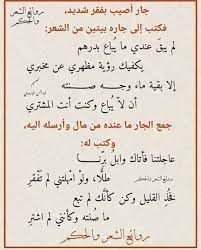 روائع الشعر والحكم
جار أصيب بفقر شديد،
فكتب إلى جاره بيتين من الشعر:
لم يبق عندي ما يُباع بدرهم
يكفيك رؤية مظهري عن مخبري
إلا بقية ماء وجه صنته
أن لا يُباع وكنت أنت المشتري
جمع الجار ما عنده من مال وأرسله اليه،
وكتب له:
روائع الشعر والحكم
عاجلتنا فأتاك وابلُ برِّنا
طلًّا، ولو امهلتني لم تَفْقرِ
فخُذِ القليل وكن كأنك لم تبع
ما صُنته وكأنني لم اشترِ
روائع الشعر والحكم